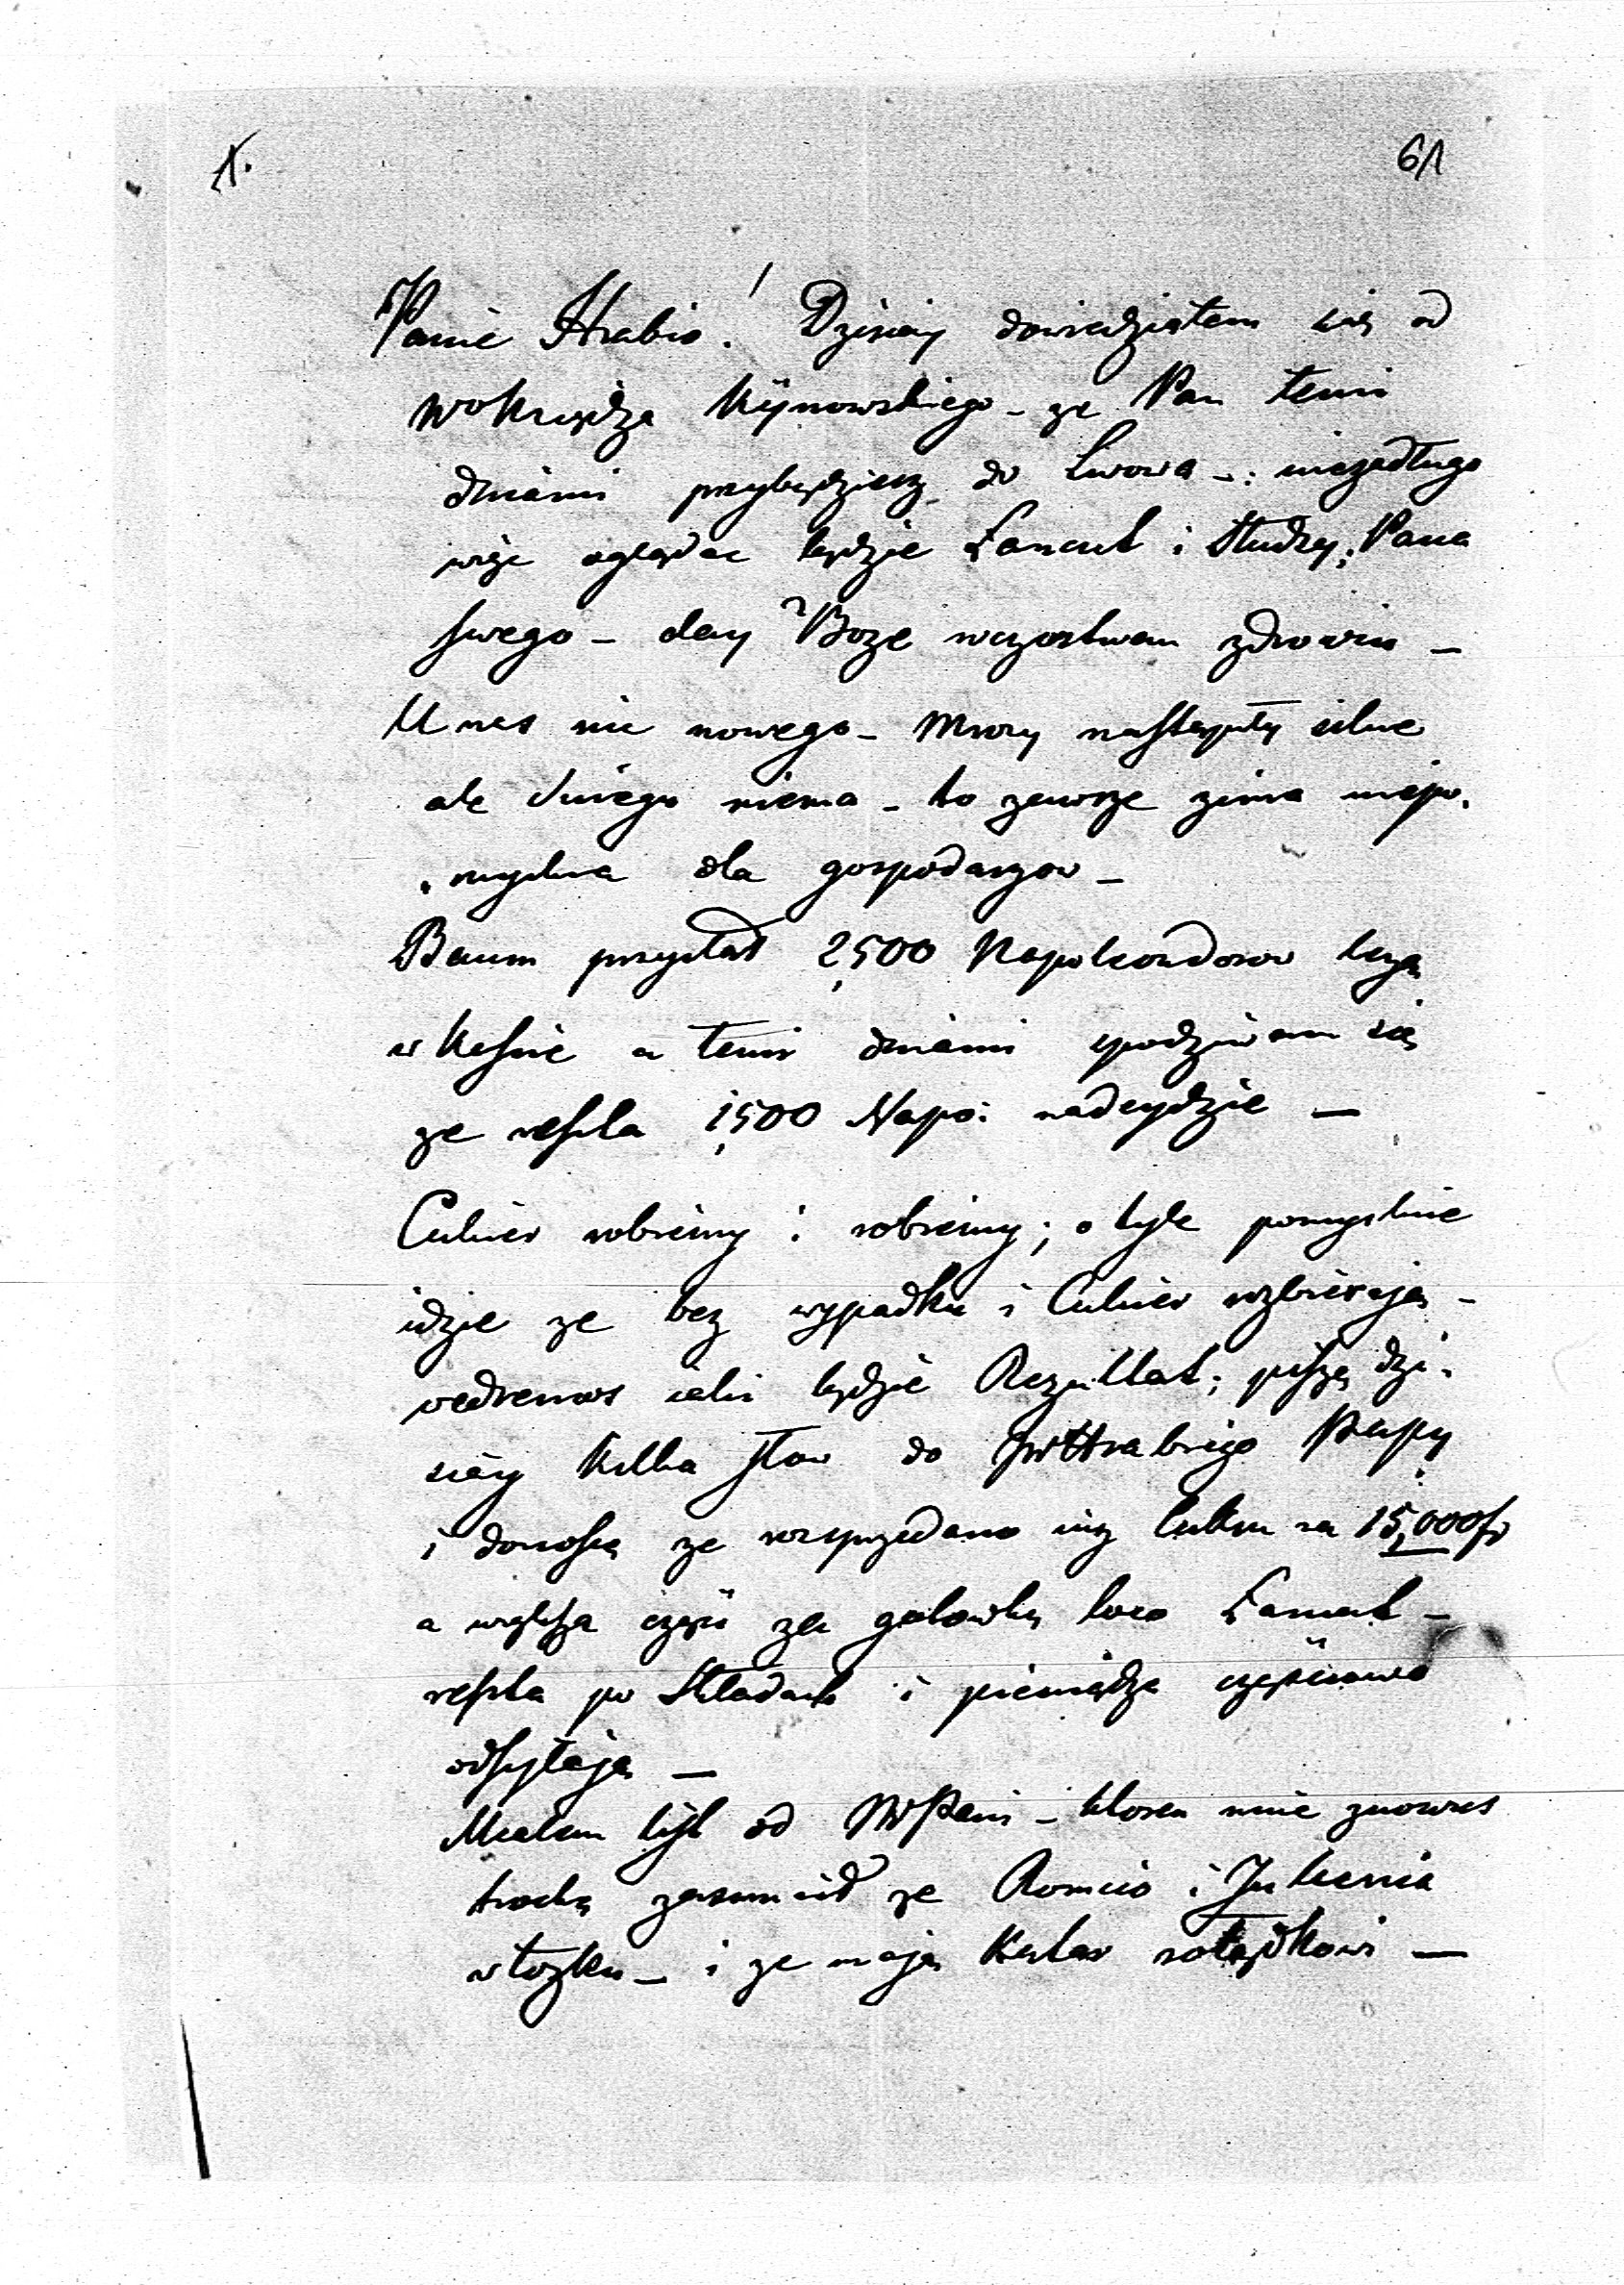 1. 61
Panie Hrabio! Dzisiay dowiedziałem się od
Kijnowskiego – ze Pan temi
dniami przybędziesz do Lwowa –: niezadługo
więc oglądac będzie Lancut i Słudzy Pana
swego – day Boze wczerstwem zdrowiu –
U nas nic nowego – Mrozy nastąpiły silne
ale sniegu niema – to zawsze zima niepo.
.myslna dla gospodarzow –
Baum przysłał 2,500 Napoleondorow lezą
w Kassie a temi dniami spodziewam się
ze reszta 1,500 Napo: nadeydzie –
Cukier robiemy i robiemy; o tyle pomyslnie
idzie ze bez wypadku i Cukier rozbierają –
iaki będzie Rezultat; piszę dzi.
siay kilka słow do JWHrabiego Papy
i donoszę ze rozsprzedano iuz cukru za 15,000 fr
a większa częsc za gotowkę loco Lancut –
reszta po Składach i pieniądze częsciowo
odsyłają –
Miałem list od JWPani – ktoren mnie znowus
trochę zasmucił ze Romcio i Julcenia
w łozku – i ze mają Katar zołądkowi –